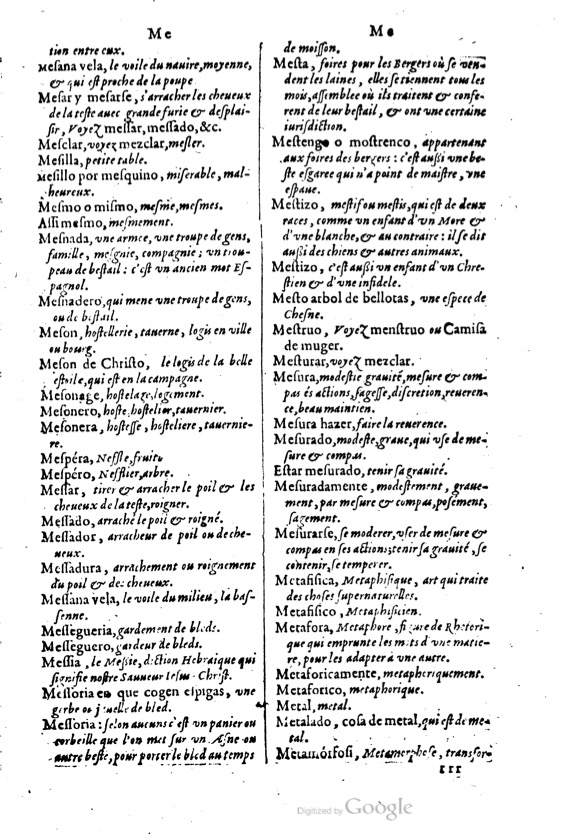 Me
tion entre eux.
Mesana vela, le voile du nauire, moyenne,
& qui est proche de la poupe
Mesar y mesarse, s'arracher les cheueux
de la teste auec grande furie & desplai-
sir, Voyez messar, messado, &c.
Mesclar, voyez mezclar, mesler.
Mesilla, petite table.
Mesillo por mesquino, miserable, mal-
heureux.
Mesmo o mismo, mesme, mesmes.
Assi mesmo, mesmement.
Mesnada, vne armee, vne troupe de gens,
famille, mesgnie, compagnie; vn trou-
peau de bestail: c'est vn ancien mot Es-
pagnol.
Mesnadero, qui mene vne troupe de gens,
ou de bestail.
Meson, hostellerie, tauerne, logis en ville
ou bourg.
Meson de Christo, le logis de la belle
estoile, qui est en la campagne.
Mesonage, hostelage, logement.
Mesonero, hoste, hostelier, tauernier.
Mesonera, hostesse, hosteliere, tauernie-
re.
Mespéra, Neffle, fruit.
Mespéro, Nefflier, arbre.
Messar, tirer & arracher le poil & les
cheueux de la teste, roigner.
Messado, arraché le poil & roigné.
Messador, arracheur de poil ou de che-
ueux.
Messadura, arrachement ou roignement
du poil & des cheueux.
Messana vela, le voile du milieu, la baf-
senne.
Messegueria, gardement de bleds.
Messeguero, gardeur de bleds.
Messia, le Messie, diction Hebraique qui
signifie nostre Sauueur Iesus-Christ.
Messoria en que cogen espigas, vne
gerbe ou jauelle de bled.
Messoria: selon aucuns c'est vn panier ou
corbeille que l'on met sur vn Asne ou
autre beste, pour porter le bled au temps
Me
de moisson.
Mesta, foires pour les Bergers où se ven-
dent les laines, elles se tiennent tous les
mois, assemblee où ils traitent & confe-
rent de leur bestail, & ont vne certaine
iurisdiction.
Mestengo o mostrenco, appartenant
aux foires des bergers: c'est aussi vne be-
ste esgaree qui n'a point de maistre, vne
espaue.
Mestizo, mestif ou mestis, qui est de deux
races, comme vn enfant d'vn More &
d'vne blanche, & au contraire: il se dit
aussi des chiens & autres animaux.
Mestizo, c'est aussi vn enfant d'vn Chre-
stien & d'vne infidele.
Mesto arbol de bellotas, vne espece de
Chesne.
Mestruo, Voyez menstruo ou Camisa
de muger.
Mesturar, voyez mezclar.
Mesura, modestie grauité, mesure & com-
pas és actions, sagesse, discretion, reueren-
ce, beau maintien.
Mesura hazer, faire la reuerence.
Mesurado, modeste, graue, qui vse de me-
sure & compas.
Estar mesurado, tenir sa grauité.
Mesuradamente, modestement, graue-
ment, par mesure & compas, posément,
sagement.
Mesurarse, se moderer, vser de mesure &
compas en ses actions; tenir sa grauité, se
contenir, se temperer.
Metafisica, Metaphisique, art qui traite
des choses supernaturelles.
Metafisico, Metaphisicien.
Metafora, Metaphore, figure de Rhetori-
que qui emprunte les mots d'vne matie-
re, pour les adapter à vne autre.
Metaforicamente, metaphoriquement.
Metaforico, metaphorique.
Metal, metal.
Metalado, cosa de metal, qui est de me-
tal.
Metamorfosi, Metamorphose, transfor-
III
Digitized by Google